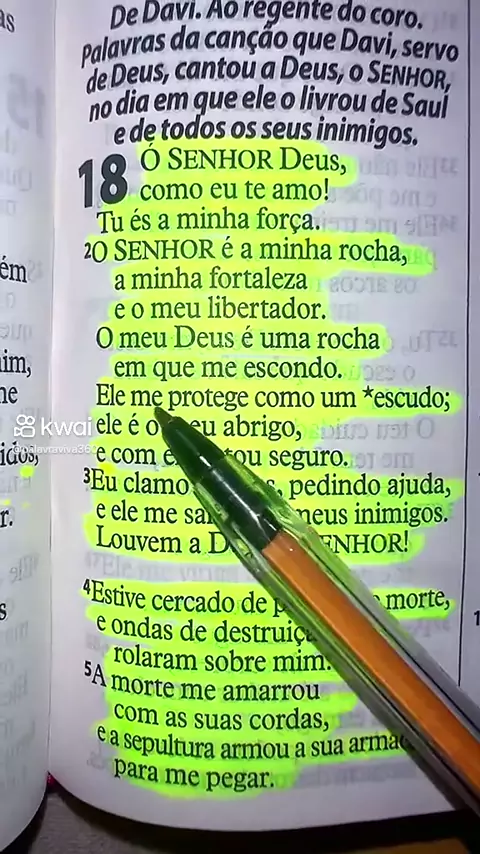 De Davi. Ao regente do coro.
Palavras da canção que Davi, servo
de Deus, cantou a Deus, o SENHOR,
no dia em que ele o livrou de Saul
e de todos os seus inimigos.
18 Ó SENHOR Deus,
como eu te amo!
Tu és a minha força.
2O SENHOR é a minha rocha,
a minha fortaleza
e o meu libertador.
O meu Deus é uma rocha
em que me escondo.
Ele me protege como um *escudo;
ele é o eu abrigo,
e com tou seguro.
3Eu clamo pedindo ajuda,
e ele me inimigos.
Louvem a
4Estive cercado de morte,
e ondas de
rolaram sobre mim.
5A morte me amarrou
com as suas cordas,
e a sepultura armou a sua
para me pegar.
ém
im,
ne
idos,
r.
s
kwai
@palavraviva360